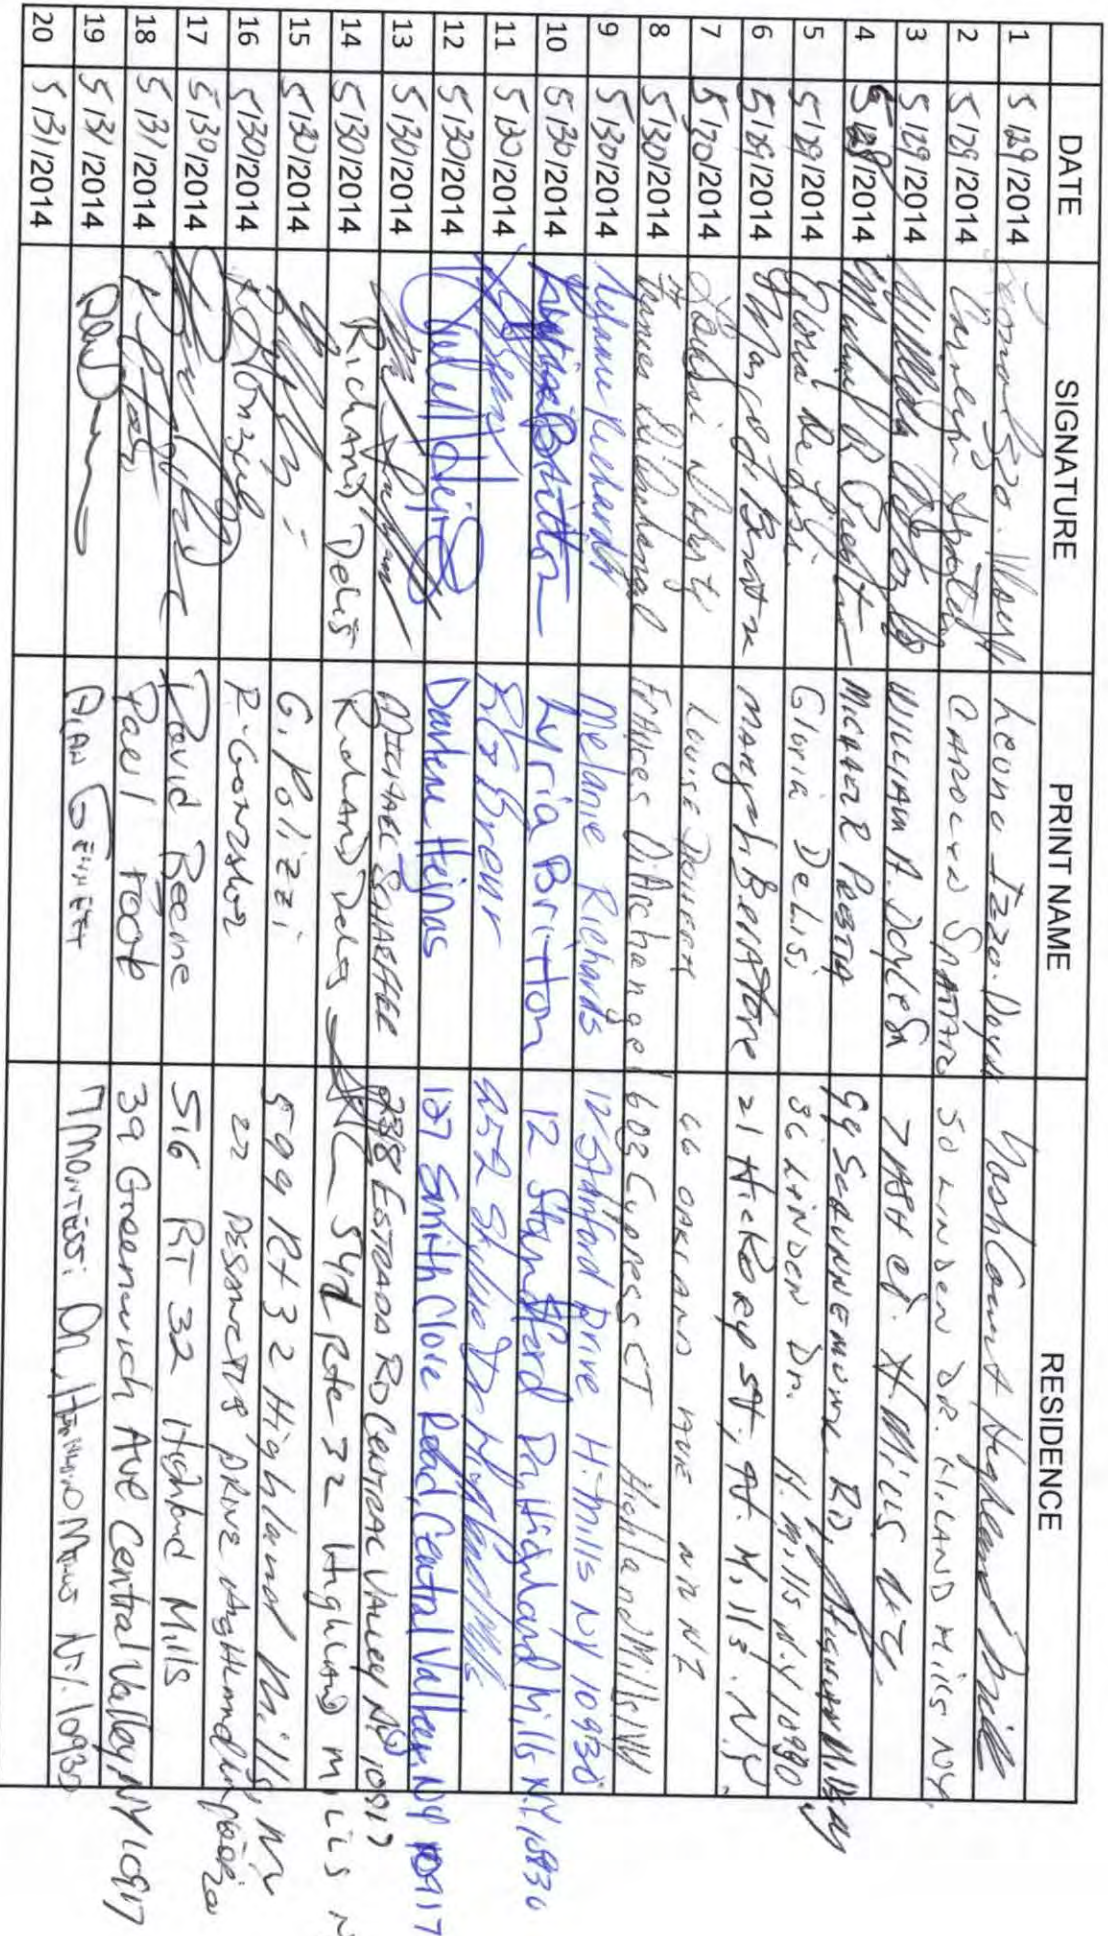 DATE SIGNATURE PRINT NAME RESIDENCE
1 5/29/2014 Highland Mills
2 5/29/2014 CAROLYN SPATARO 50 LINDEN DR. HILAND MILLS NY
3 5/29/2014 WILLIAM A. DOYLE SR 7 ASH CT. H. MILLS N.Y.
4 5/28/2014 MICHAEL R PRESTIA 99 SCHUNNEMUNK RD, HIGHLAND MILLS NY
5 5/29/2014 Gloria DeLisi Gloria DeLisi 36 LINDEN Dr. H. Mills N.Y 10930
6 5/29/2014 21 Hickory st, H. Mills. N.Y.
7 5/30/2014 Louise Doherty LOUISE DOHERTY 66 OAKLAND AVE
8 5/30/2014 Frances DiArchangel Frances DiArchangel 603 Cypress CT Highland Mills NY
9 5/30/2014 Melanie Richards Melanie Richards 12 Stanford Drive H. Mills NY 10930
10 5/30/2014 Lyria Britton Lyria Britton 12 Stamford Dr, Highland Mills N.Y. 10930
11 5/30/2014 252 Skyline Dr Highland Mills
12 5/30/2014 Darlene 127 Smith Clove Road, Central Valley, NY 10917
13 5/30/2014 MICHAEL SCHAEFFER 238 ESTRADA RD CENTRAL VALLEY NY 10917
14 5/30/2014 RICHARD DELIS Richard Delis Rte 32 Highland Mills
15 5/30/2014 G. Polizzi 599 Rt 32 Highland Mills, NY
16 5/30/2014 R. Gonzalez 22 DRIVE
17 5/30/2014 David Beeme 516 RT 32 Highland Mills
18 5/31/2014 Paul Foote 39 Greenwich Ave Central Valley, NY 10917
19 5/31/2014 ALAN 7 MONTESSI DR, N.Y. 10930
20 5/31/2014